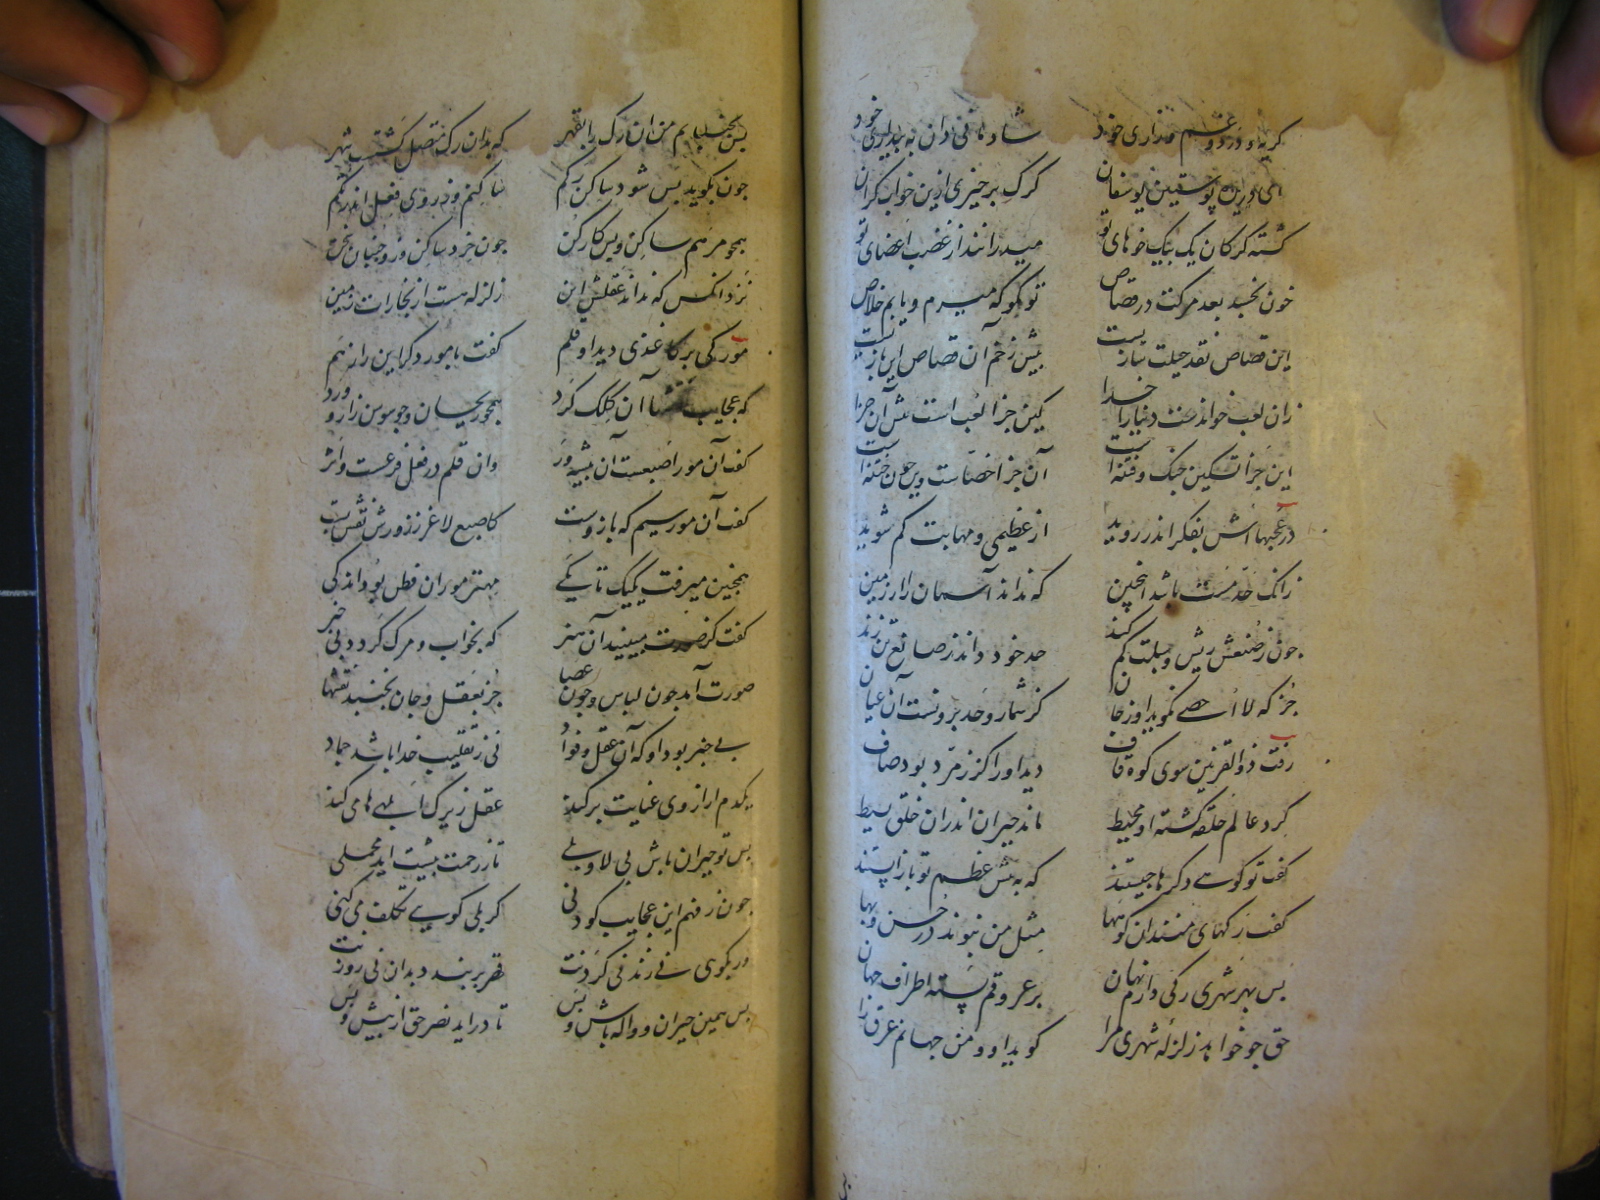 گریه و درد و غم و زاری خود شادمانی دان به بیداری خود
ای دریده پوستین یوسفان گرگ برخیزی ازین خواب گران
گشته گرکان یک بیک خوهای تو میدرانند از غضب اعضای تو
خون نخسبد بعد مرکت در قصاص تو مکو که میرم و یابم خلاص
این قصاص نقد حیلت سازیست پیش زخم آن قصاص این بازیست
زان لعب خواندست دنیا را خدا کین جزا لعب است پیش آن جزا
این جزا تسکین جنگ و فتنه است آن جزا اخصاست و این چون ختنه است
در عجبهااش بفکر اندر روید از عظیمی و مهابت کم شوید
زانک حد مست باشد اینچنین که نداند آسمان را از زمین
چون ز صنعش ریش و سبلت کم کند حد خود داند ز صانع تن زند
جز که لا احصی نکوید او ز جان کز شمار و حد برونست آن عیان
رفت ذوالقرنین سوی کوه قاف دید او را کز زمرد بود صاف
کرد عالم حلقه کشته او محیط ماند حیران اندران خلق بسیط
کفت تو کوهی دکرها چیستند که به پیش عظم تو باز ایستند
کفت رکهای منند ان کوهها مثل من نبوند در حسن و بها
پس بهر شهری رکی دارم نهان بر عروقم بسته اطراف جهان
حق چو خواهد زلزله شهری مرا کوید او و من جهانم عرق را
پس بجنبانم من ان رک را بقهر که بدان رک متصل کشتست شهر
چون بکوید بس شود ساکن رکم ساکنم وز روی فعل اندر تکم
همچو مرهم ساکن و بس کارکن چون خرد ساکن وزو جنبان سخن
نزد انکس که نداند عقلش این زلزله هست از بخارات زمین
مورکی بر کاغذی دید او قلم کفت با مور دکر این راز هم
که عجایب نقشها آن کلک کرد همچو ریحان و چو سوسن زار و ورد
کفت آن مور اصبعست آن پیشه ور وان قلم در فعل فرعست و اثر
کفت آن مور سیم که بازوست کاصبع لاغر ز زورش نقش بست
همچنین میرفت یک یک تا یکی مهتر موران فطن بود اندکی
کفت کز صورت مبینید آن هنر که بخواب و مرک کردد بی خبر
صورت آمد چون لباس و چون عصا جز بعقل و جان نجنبد نقشها
بی خبر بود او که آن عقل و فواد بی ز تقلیب خدا باشد جماد
یکدم ار از وی عنایت برکند عقل زیرک ابلهی ها می کند
پس تو حیران باش بی لا و بلی تا ز رحمت پیشت اید محملی
چون ز فهم این عجایب کودنی کر بلی کویی تکلف می کنی
ور بکوی نی زند نی کردنت قهر بربندد بدان نی روزنت
پس همین حیران و واله باش و بس تا دراید نصر حق از پیش و پس